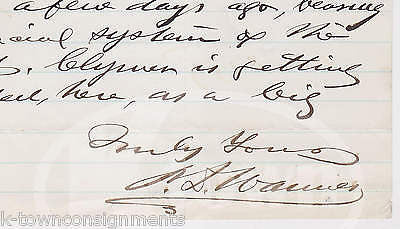 a few days ago, bearing
cial system of the
Clymer is getting
here, as a big
Truly Yours
Warner
k-townconsignments